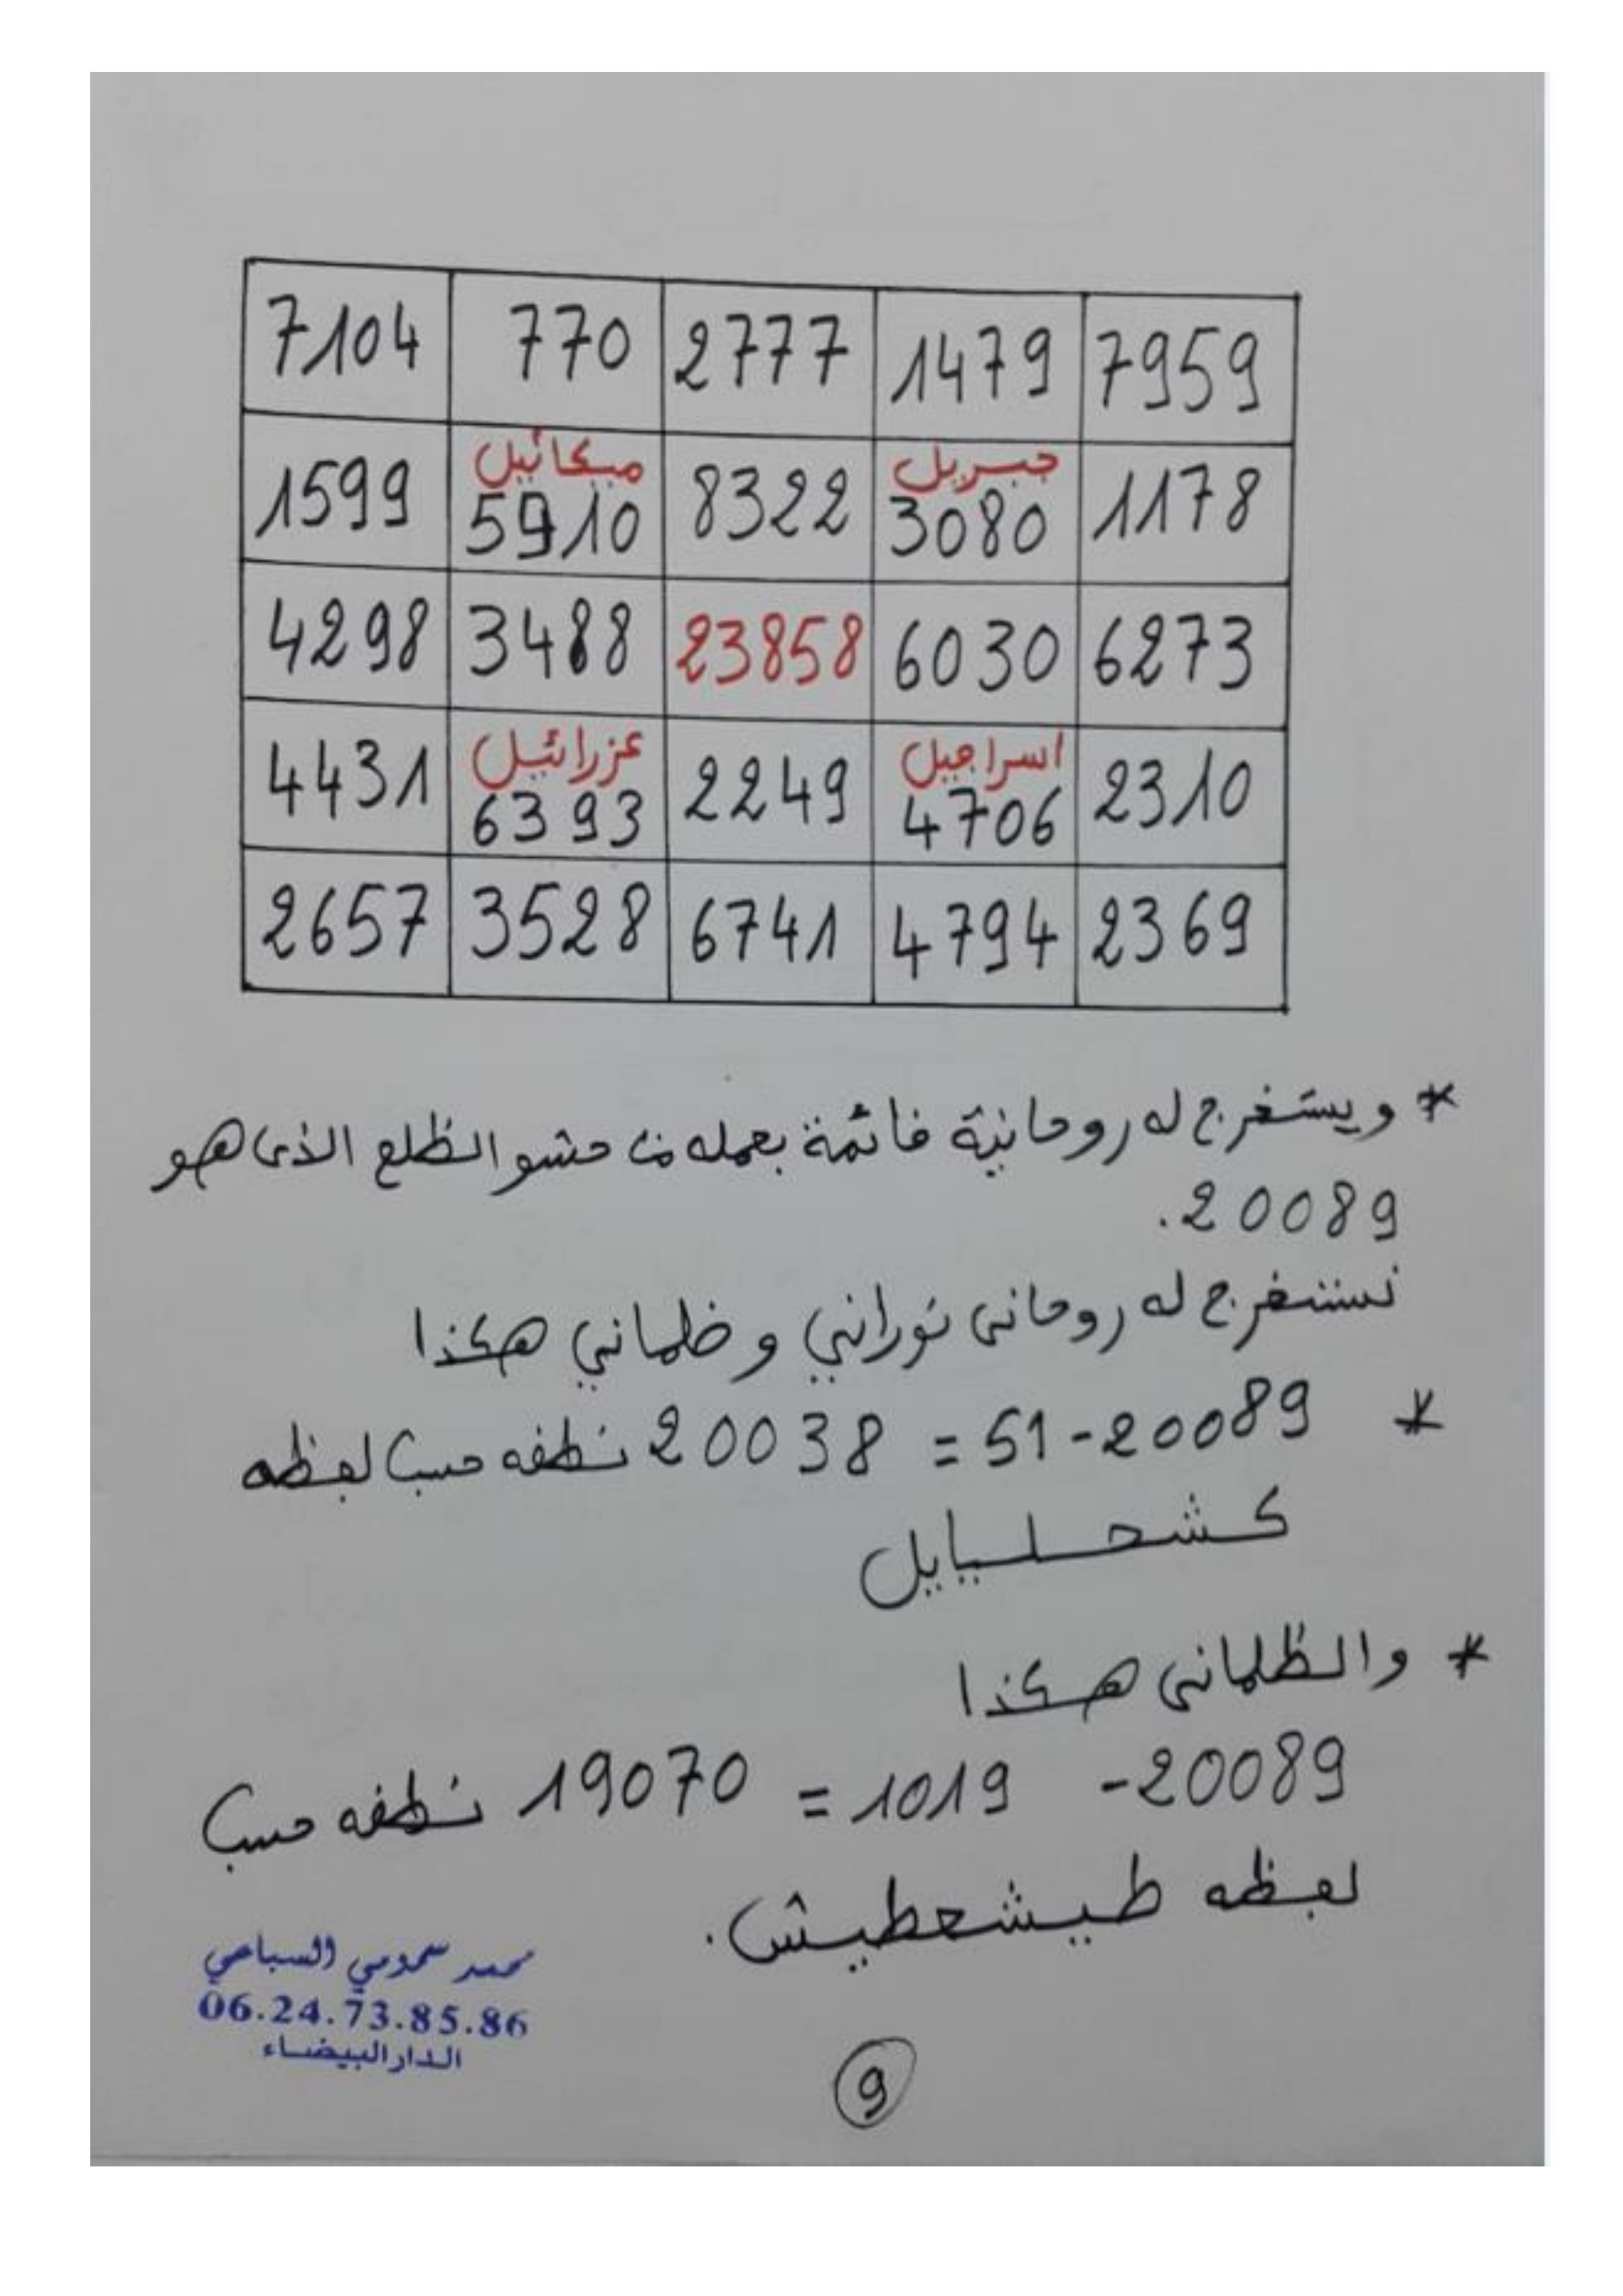 7104 770 2777 1479 7959
1599 ميكائيل 5910 8322 جبريل 3080 1178
4298 3488 23858 6030 6273
4431 عزرائيل 6393 2249 اسرافيل 4706 2310
2657 3528 6741 4794 2369
* ويستخرج له روحانية قائمة بعمله من حشو الظلع الذى هو
20089.
نستخرج له روحانى نوراني وظلماني هكذا
* 20089-51 = 20038 نطقه حسب لفظه
كشحليايل
* والظلمانى هكذا
20089- 1019 = 19070 نطقه حسب
لفظه طيشعطيش.
محمد سمومي السباعي
06.24.73.85.86
الدار البيضاء
9